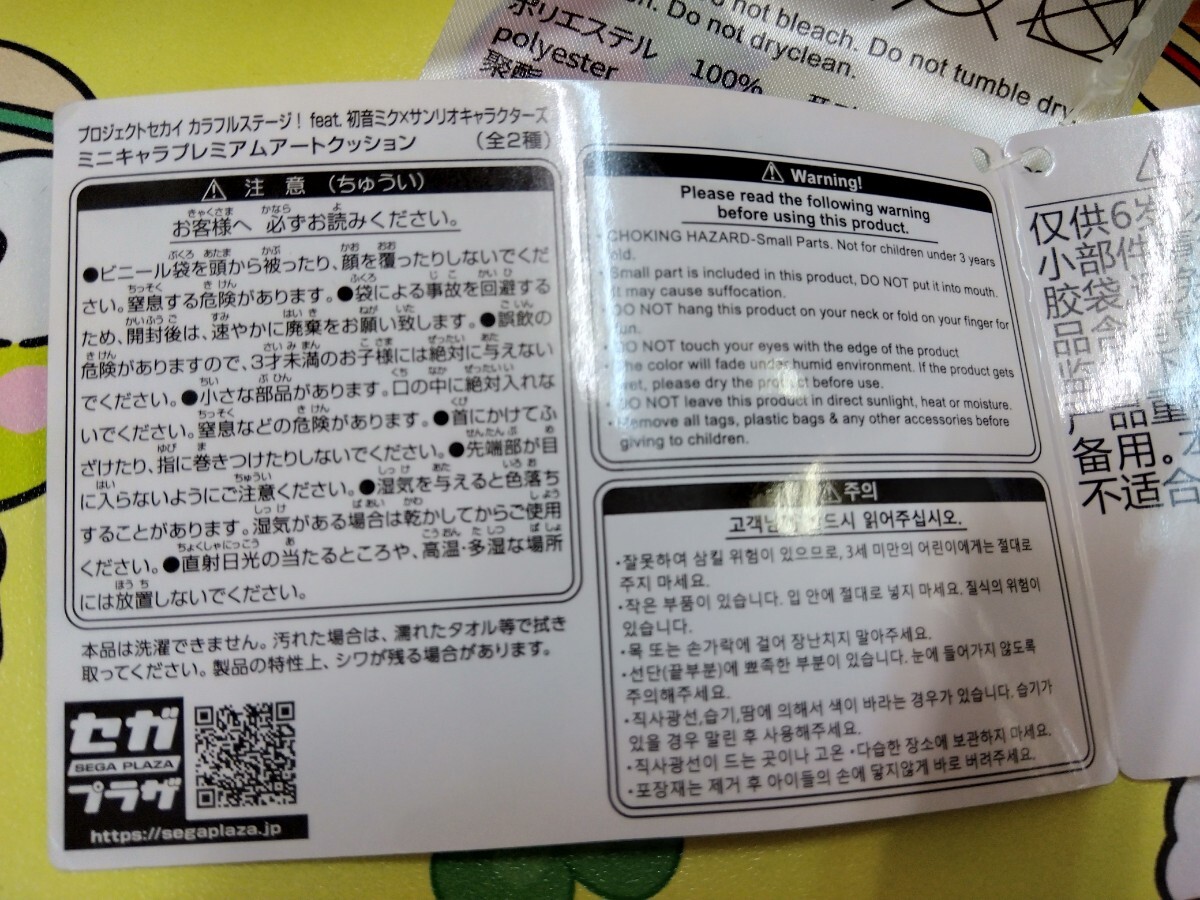 not bleach. Do not tumble dry.
Do not dryclean.
ポリエステル 100%
polyester
聚酯
プロジェクトセカイ カラフルステージ! feat. 初音ミク×サンリオキャラクターズ
ミニキャラプレミアムアートクッション (全2種)
⚠ 注意 (ちゅうい)
お客様へ 必ずお読みください。
●ビニール袋を頭から被ったり、顔を覆ったりしないでくだ
さい。窒息する危険があります。●袋による事故を回避する
ため、開封後は、速やかに廃棄をお願い致します。●誤飲の
危険がありますので、3才未満のお子様には絶対に与えない
でください。●小さな部品があります。口の中に絶対入れな
いでください。窒息などの危険があります。●首にかけてふ
ざけたり、指に巻きつけたりしないでください。●先端部が目
に入らないようにご注意ください。●湿気を与えると色落ち
することがあります。湿気がある場合は乾かしてからご使用
ください。●直射日光の当たるところや、高温・多湿な場所
には放置しないでください。
本品は洗濯できません。汚れた場合は、濡れたタオル等で拭き
取ってください。製品の特性上、シワが残る場合があります。
セガ
SEGA PLAZA
プラザ
https://segaplaza.jp
⚠ Warning!
Please read the following warning
before using this product.
CHOKING HAZARD-Small Parts. Not for children under 3 years
old.
Small part is included in this product, DO NOT put it into mouth.
It may cause suffocation.
DO NOT hang this product on your neck or fold on your finger for
fun.
DO NOT touch your eyes with the edge of the product
The color will fade under humid environment. If the product gets
wet, please dry the product before use.
DO NOT leave this product in direct sunlight, heat or moisture.
Remove all tags, plastic bags & any other accessories before
giving to children.
⚠ 주의
고객님 반드시 읽어주십시오.
·잘못하여 삼킬 위험이 있으므로, 3세 미만의 어린이에게는 절대로
주지 마세요.
·작은 부품이 있습니다. 입 안에 절대로 넣지 마세요. 질식의 위험이
있습니다.
·목 또는 손가락에 걸어 장난치지 말아주세요.
·선단(끝부분)에 뾰족한 부분이 있습니다. 눈에 들어가지 않도록
주의해주세요.
·직사광선,습기,땀에 의해서 색이 바라는 경우가 있습니다. 습기가
있을 경우 말린 후 사용해주세요.
·직사광선이 드는 곳이나 고온·다습한 장소에 보관하지 마세요.
·포장재는 제거 후 아이들의 손에 닿지않게 바로 버려주세요.
仅供6岁
小部件
胶袋
品含
产品量
备用。本
不适合